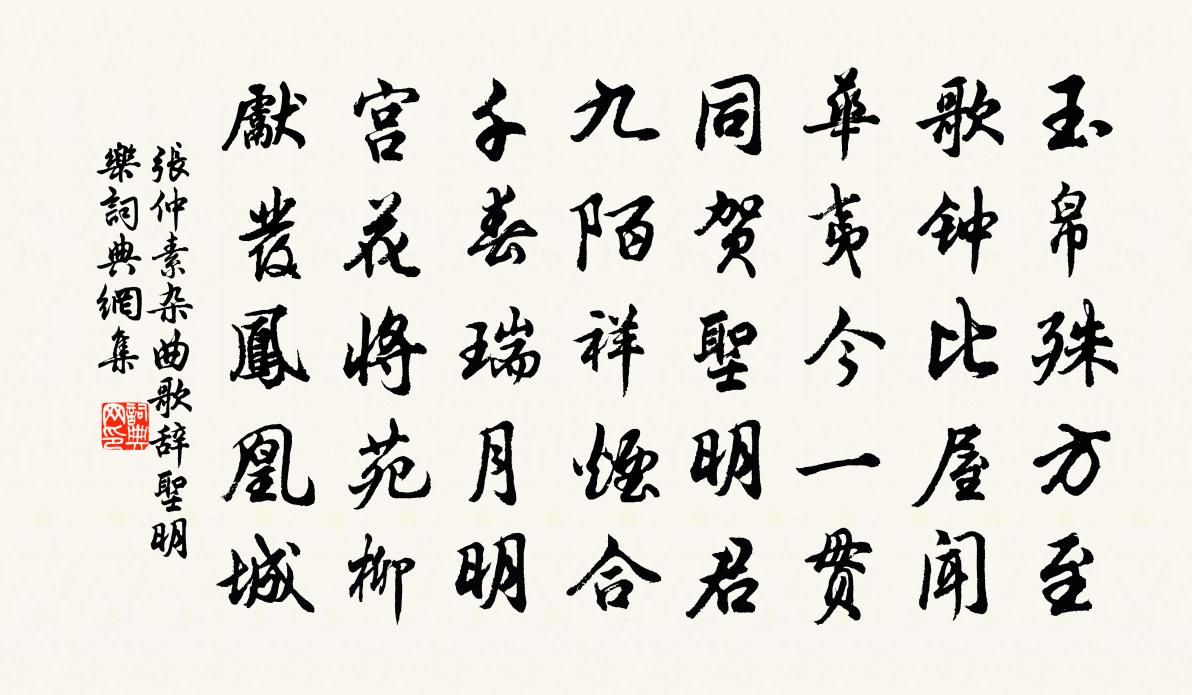 玉帛殊方至
歌钟比屋闻
華夷今一贯
同贺聖明君
九陌祥煙合
千春瑞月明
宫花將苑柳
獻發鳳凰城
張仲素杂曲歌辞聖明
樂詞典網集
詞典
网印